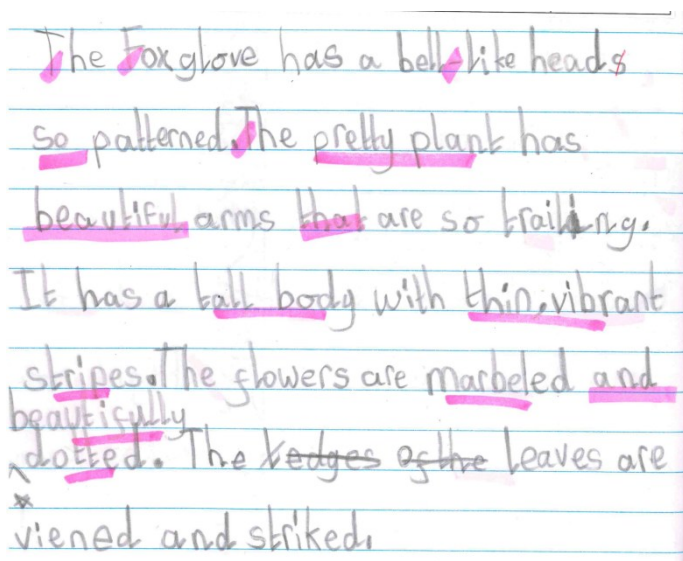 The Foxglove has a bell-like heads
so patterned. The pretty plant has
beautiful arms that are so trailing.
It has a tall body with thin, vibrant
stripes. The flowers are marbeled and
beautifully
dotted. The edges of the leaves are
viened and striked.